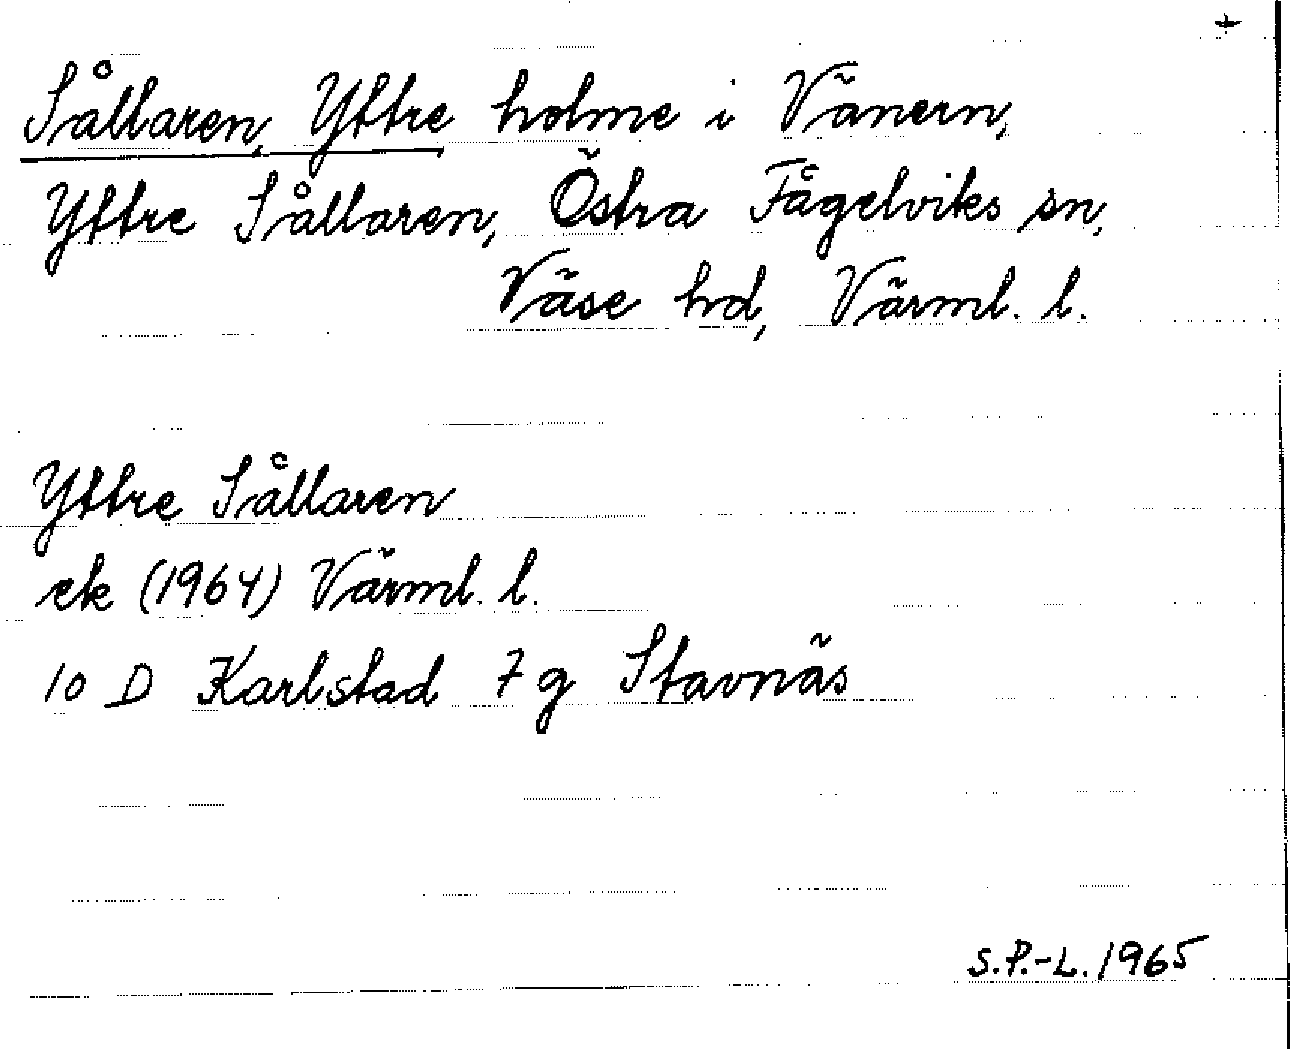 +
Sållaren, Yttre holme i Vänern,
Yttre Sållaren, Östra Fågelviks sn,
Väse hd, Värml. l.
Yttre Sållaren
ek (1964) Värml. l.
10 D Karlstad 7 g Stavnäs
S.P.-L. 1965